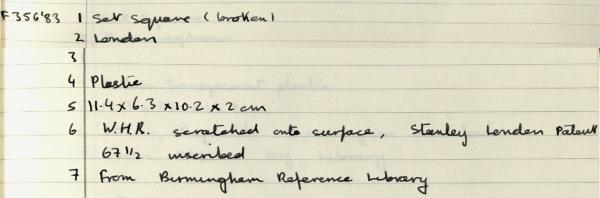 F356'83 1 Set Square (broken)
2 London
3
4 Plastic
5 11.4 x 6.3 x 10.2 x 2 cm
6 W.H.R. scratched onto surface, Stanley London Patent
67 1/2 inscribed
7 From Birmingham Reference Library